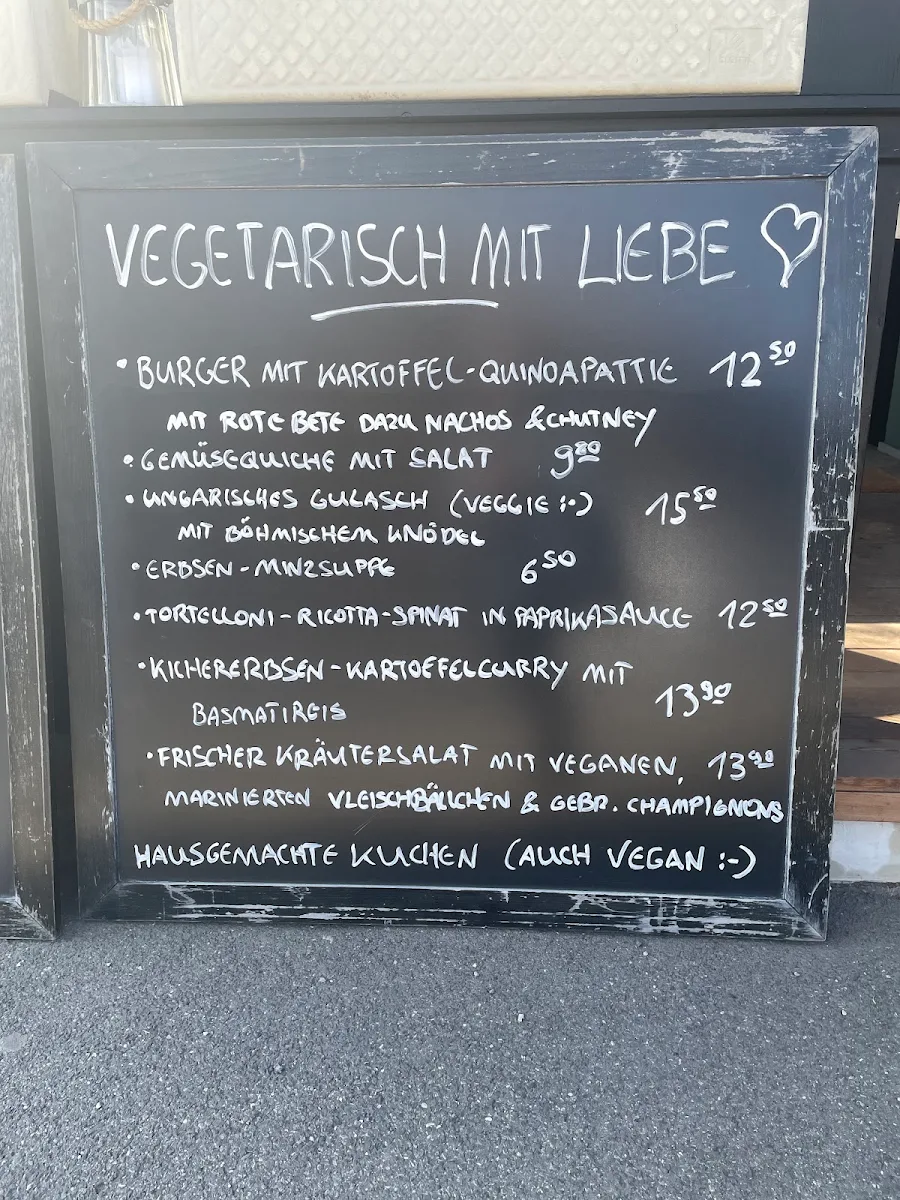 VEGETARISCH MIT LIEBE ♡
• BURGER MIT KARTOFFEL-QUINOAPATTIE 12 50
MIT ROTE BETE DAZU NACHOS & CHUTNEY
• GEMÜSEQUICHE MIT SALAT 9 80
• UNGARISCHES GULASCH (VEGGIE :-) 15 50
MIT BÖHMISCHEM KNÖDEL
• ERBSEN-MINZSUPPE 6 50
• TORTELLONI-RICOTTA-SPINAT IN PAPRIKASAUCE 12 50
• KICHERERBSEN-KARTOFFELCURRY MIT
BASMATIREIS 13 90
• FRISCHER KRÄUTERSALAT MIT VEGANEN, 13 90
MARINIERTEN VLEISCHBÄLLCHEN & GEBR. CHAMPIGNONS
HAUSGEMACHTE KUCHEN (AUCH VEGAN :-)